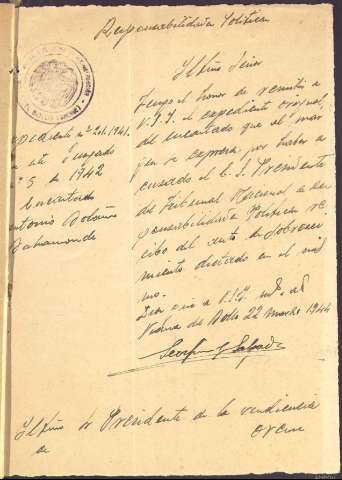 Responsabilidad Política
Iltmo Señor
Tengo el honor de remitir a
V.I.I. el expediente original
del encartado que al mar
gen se expresa por haber a
cusado el E. S. Presidente
del Tribunal Nacional de Res
ponsabilidades Políticas re
cibo del auto de Sobresei
miento dictado en el mis
mo.
Dios gue a V.I.I. ms. as
Viana del Bollo 22 Marzo 1944
Expediente nº 206.1941
de este Juzgado
nº 5 de 1942
Encartado
Antonio Bolaño
Bahamonde
Iltmo Sr Presidente de la Audiencia
de
Orense